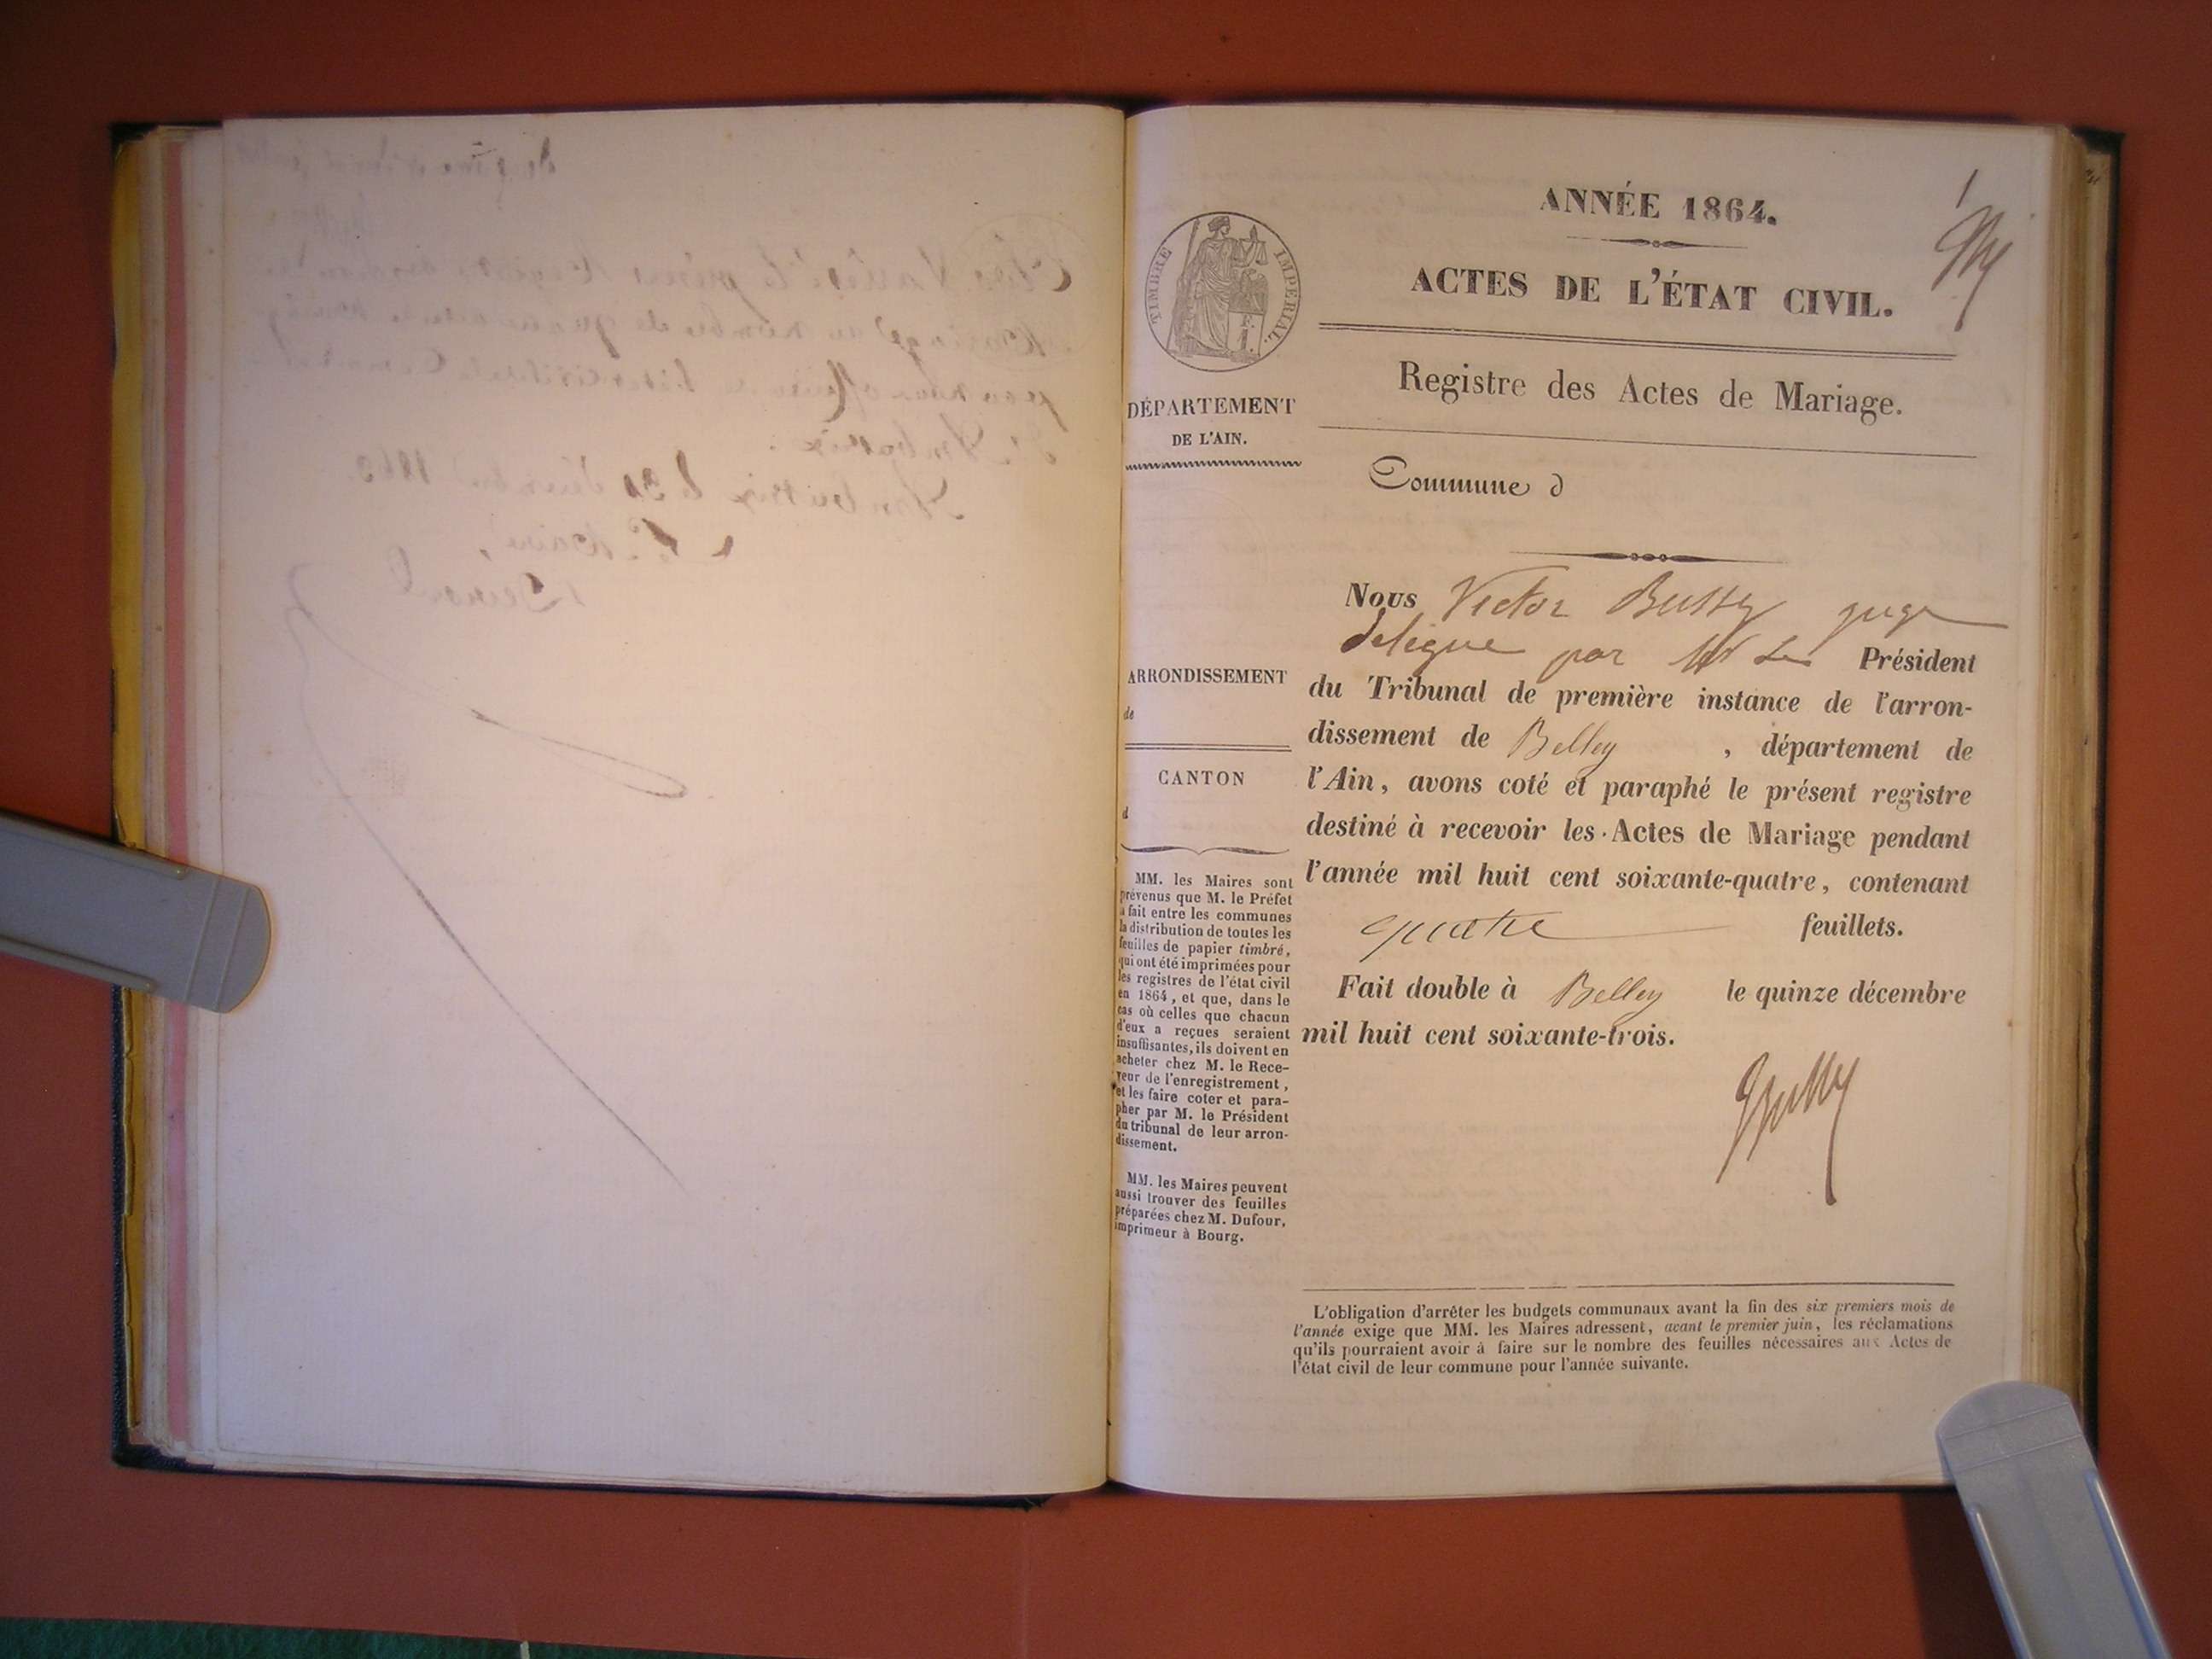 ANNÉE 1864.
ACTES DE L'ÉTAT CIVIL.
Registre des Actes de Mariage.
Commune d
TIMBRE IMPÉRIAL.
1 F.
DÉPARTEMENT
DE L'AIN.
ARRONDISSEMENT
de
CANTON
d
MM. les Maires sont
prévenus que M. le Préfet
a fait entre les communes
la distribution de toutes les
feuilles de papier timbré,
qui ont été imprimées pour
les registres de l'état civil
en 1864, et que, dans le
cas où celles que chacun
d'eux a reçues seraient
insuffisantes, ils doivent en
acheter chez M. le Rece-
veur de l'enregistrement,
et les faire coter et para-
pher par M. le Président
du tribunal de leur arron-
dissement.
MM. les Maires peuvent
aussi trouver des feuilles
préparées chez M. Dufour,
imprimeur à Bourg.
Nous Victor Bussy juge
delegue par Mr Le Président
du Tribunal de première instance de l'arron-
dissement de Belley, département de
l'Ain, avons coté et paraphé le présent registre
destiné à recevoir les Actes de Mariage pendant
l'année mil huit cent soixante-quatre, contenant
quatre feuillets.
Fait double à Belley le quinze décembre
mil huit cent soixante-trois.
L'obligation d'arrêter les budgets communaux avant la fin des six premiers mois de
l'année exige que MM. les Maires adressent, avant le premier juin, les réclamations
qu'ils pourraient avoir à faire sur le nombre des feuilles nécessaires aux Actes de
l'état civil de leur commune pour l'année suivante.